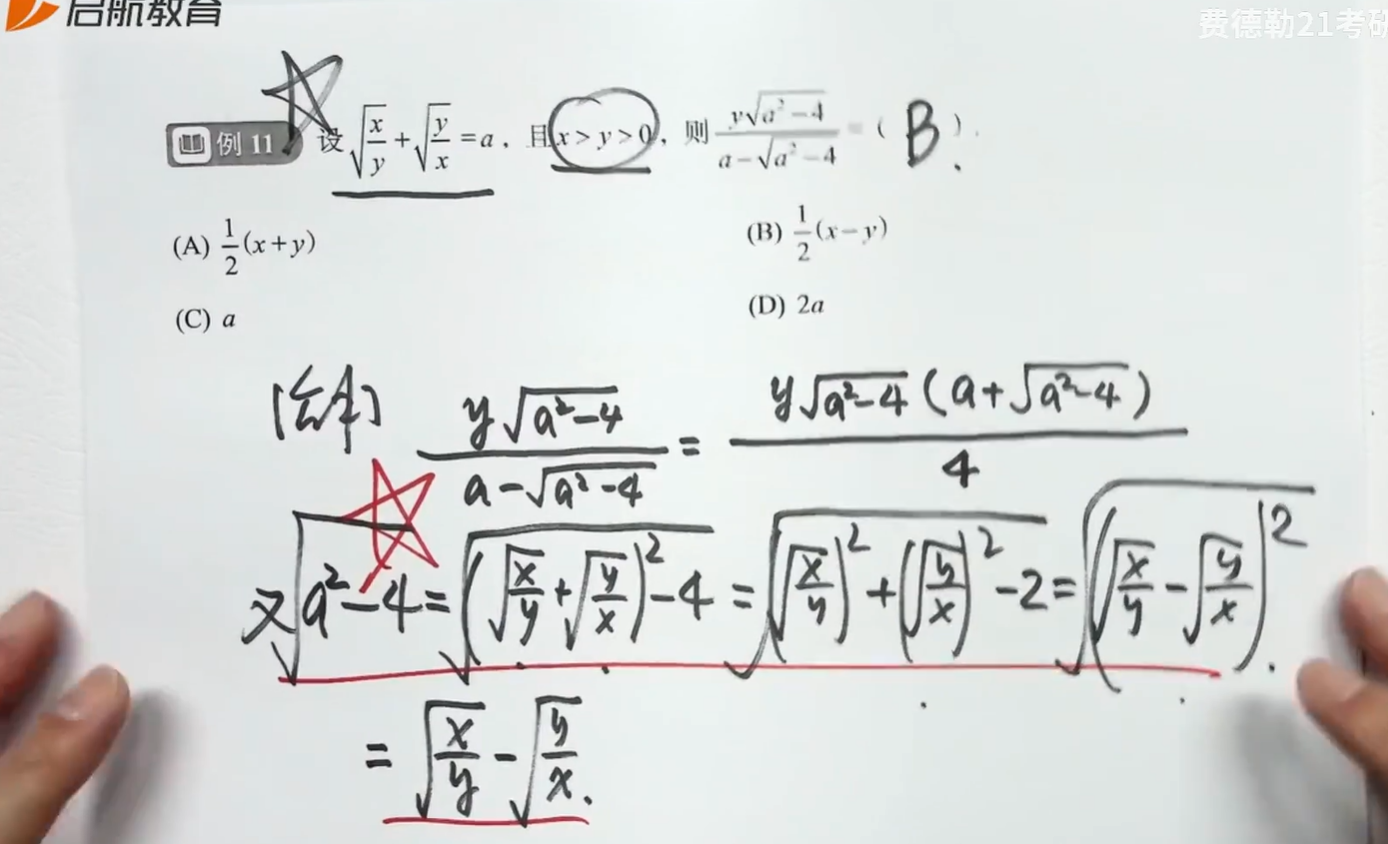 启航教育
费德勒21考研
例 11 设 √(x/y) + √(y/x) = a，且 x > y > 0，则 y√(a²−4) / (a−√(a²−4)) = ( B ).
(A) 1/2 (x+y)
(B) 1/2 (x−y)
(C) a
(D) 2a
y√(a²−4) / (a−√(a²−4)) = y√(a²−4) (a+√(a²−4)) / 4
又 √(a²−4) = √((√(x/y) + √(y/x))² −4) = √((√(x/y))² + (√(y/x))² −2) = √((√(x/y) − √(y/x))²).
= √(x/y) − √(y/x).